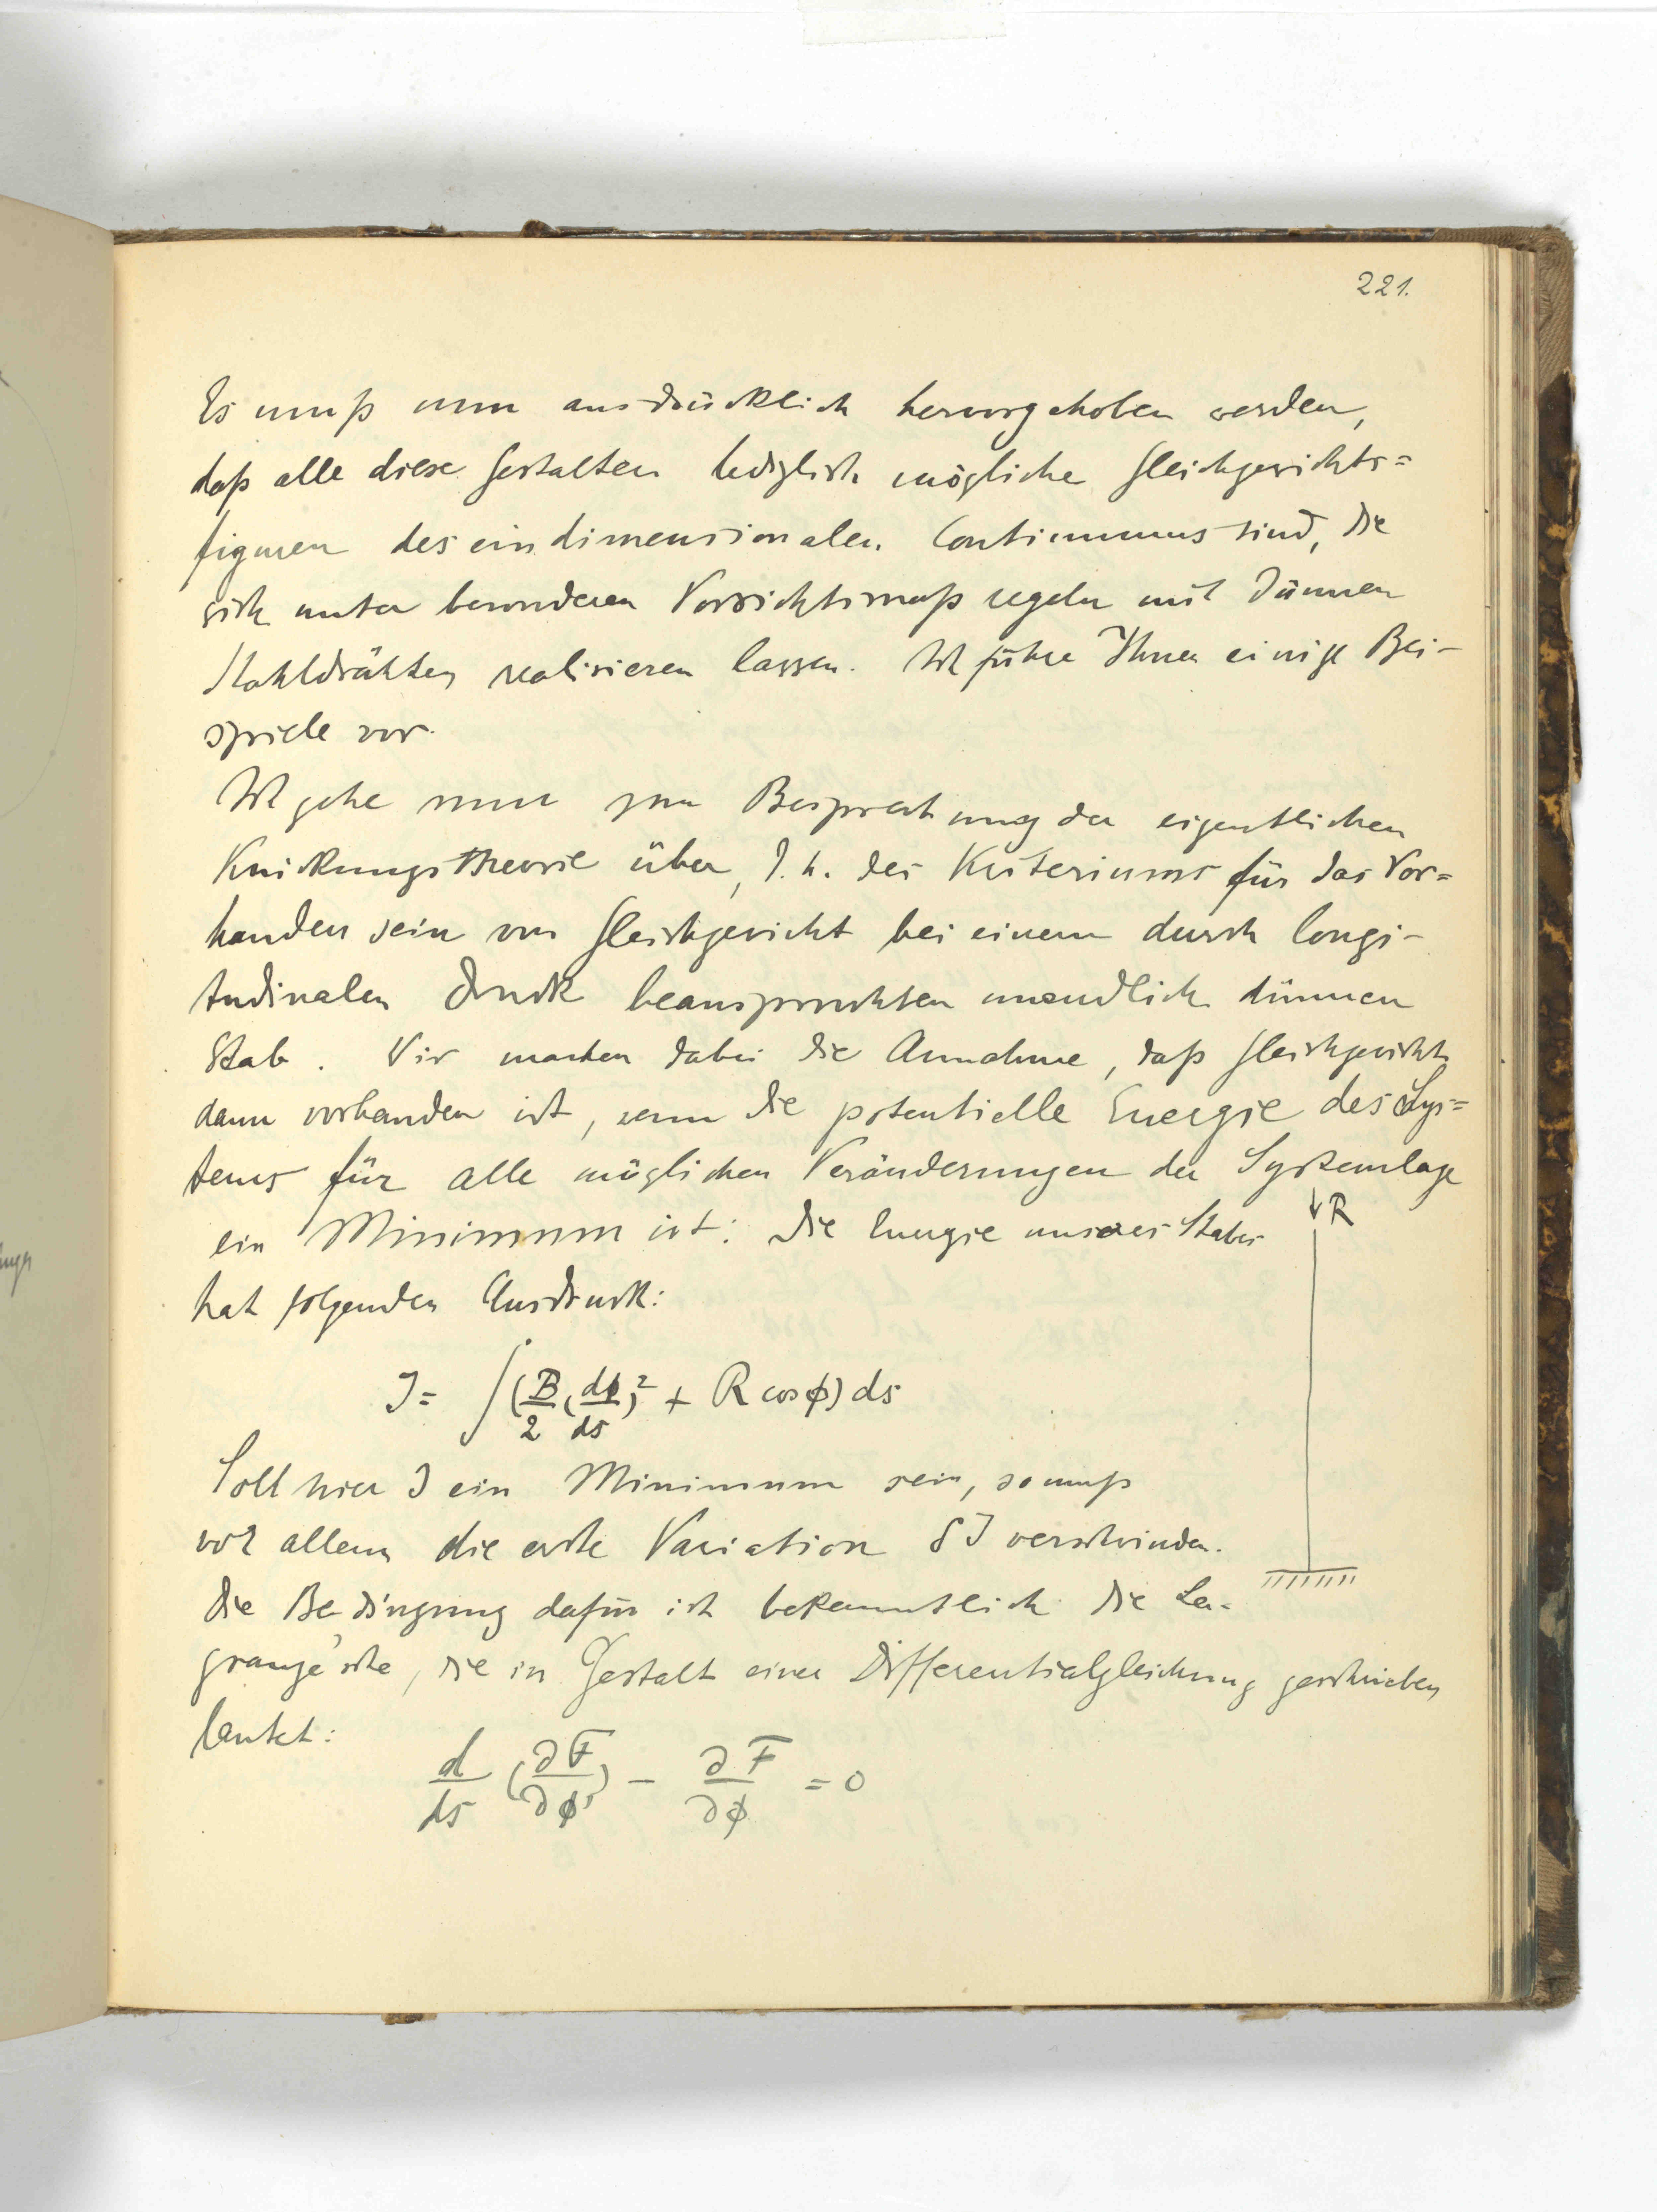 221.
Es muß nun ausdrücklich hervorgehoben werden,
daß alle diese Gestalten lediglich mögliche Gleichgewichts=
figuren des eindimensionalen Continuums sind, die
sich unter besonderen Vorsichtsmaßregeln mit dünnen
Stahldrähten realisieren lassen. Ich führe Ihnen einige Bei-
spiele vor.
Ich gehe nun zur Besprechung der eigentlichen
Knickungstheorie über, d.h. des Kriteriums für das Vor=
handensein von Gleichgewicht bei einem durch longi-
tudinalen Druck beanspruchten unendlich dünnen
Stab. Wir machen dabei die Annahme, daß Gleichgewicht
dann vorhanden ist, wenn die potentielle Energie des Sys=
tems für alle möglichen Veränderungen der Systemlage
ein Minimum ist: Die Energie unseres Stabes
hat folgenden Ausdruck:
↓R
J = ∫(B/2 (dϕ/ds)² + R cos ϕ) ds
Soll hier J ein Minimum sein, so muß
vor allem die erste Variation δJ verschwinden.
Die Bedingung dafür ist bekanntlich die La-
grange'sche, die in Gestalt einer Differentialgleichung geschrieben
lautet:
d/ds (∂F/∂ϕ') - ∂F/∂ϕ = 0